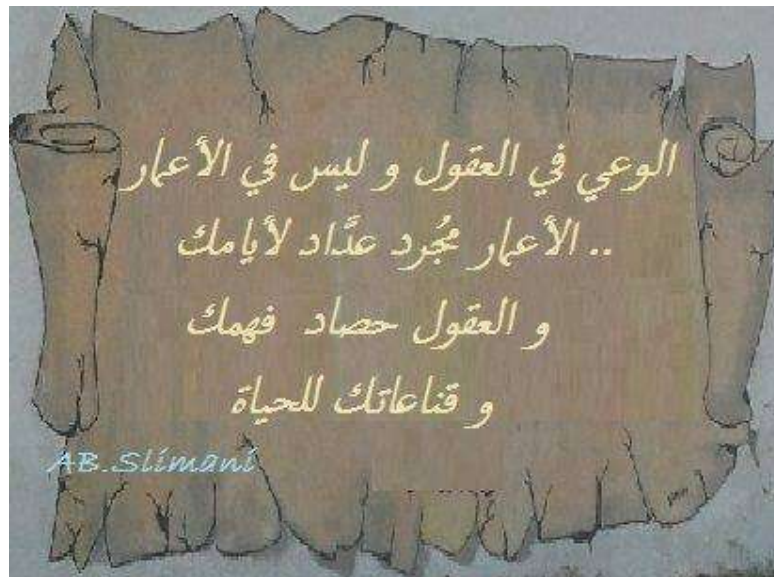 الوعي في العقول و ليس في الأعمار
.. الأعمار مجُرد عدَّاد لأيامك
و العقول حصاد فهمك
و قناعاتك للحياة
AB.Slimani